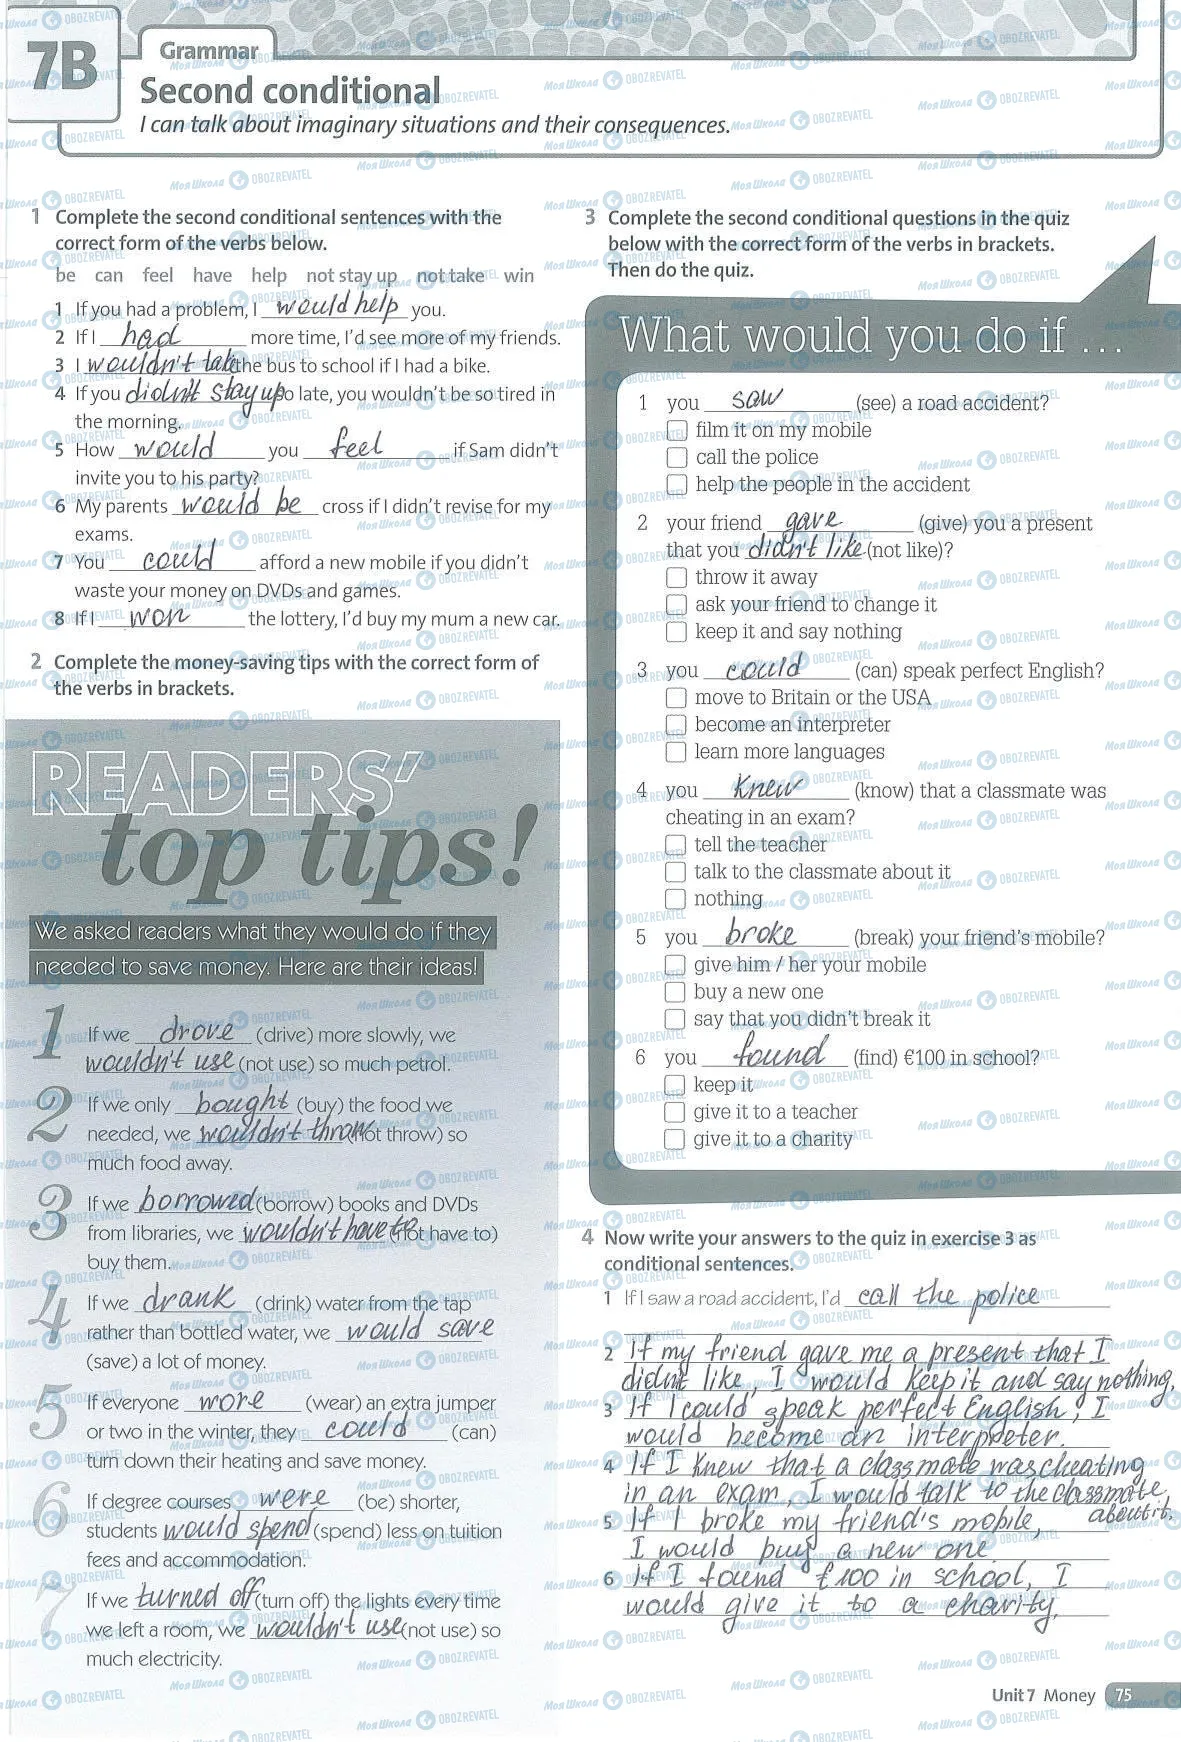 7B
Grammar
Second conditional
I can talk about imaginary situations and their consequences.
1 Complete the second conditional sentences with the
correct form of the verbs below.
be can feel have help not stay up not take win
1 If you had a problem, I would help you.
2 If I had more time, I'd see more of my friends.
3 I wouldn't take the bus to school if I had a bike.
4 If you didn't stay up so late, you wouldn't be so tired in
the morning.
5 How would you feel if Sam didn't
invite you to his party?
6 My parents would be cross if I didn't revise for my
exams.
7 You could afford a new mobile if you didn't
waste your money on DVDs and games.
8 If I won the lottery, I'd buy my mum a new car.
2 Complete the money-saving tips with the correct form of
the verbs in brackets.
READERS'
top tips!
We asked readers what they would do if they
needed to save money. Here are their ideas!
1 If we drove (drive) more slowly, we
wouldn't use (not use) so much petrol.
2 If we only bought (buy) the food we
needed, we wouldn't throw (not throw) so
much food away.
3 If we borrowed (borrow) books and DVDs
from libraries, we wouldn't have to (not have to)
buy them.
4 If we drank (drink) water from the tap
rather than bottled water, we would save
(save) a lot of money.
5 If everyone wore (wear) an extra jumper
or two in the winter, they could (can)
turn down their heating and save money.
6 If degree courses were (be) shorter,
students would spend (spend) less on tuition
fees and accommodation.
7 If we turned off (turn off) the lights every time
we left a room, we wouldn't use (not use) so
much electricity.
3 Complete the second conditional questions in the quiz
below with the correct form of the verbs in brackets.
Then do the quiz.
What would you do if ...
1 you saw (see) a road accident?
film it on my mobile
call the police
help the people in the accident
2 your friend gave (give) you a present
that you didn't like (not like)?
throw it away
ask your friend to change it
keep it and say nothing
3 you could (can) speak perfect English?
move to Britain or the USA
become an interpreter
learn more languages
4 you knew (know) that a classmate was
cheating in an exam?
tell the teacher
talk to the classmate about it
nothing
5 you broke (break) your friend's mobile?
give him / her your mobile
buy a new one
say that you didn't break it
6 you found (find) €100 in school?
keep it
give it to a teacher
give it to a charity
4 Now write your answers to the quiz in exercise 3 as
conditional sentences.
1 If I saw a road accident, I'd call the police
2 If my friend gave me a present that I
didn't like, I would keep it and say nothing.
3 If I could speak perfect English, I
would become an interpreter.
4 If I knew that a classmate was cheating
in an exam, I would talk to the classmate,
about it.
5 If I broke my friend's mobile,
I would buy a new one.
6 If I found €100 in school, I
would give it to a charity.
Unit 7 Money 75
Моя Школа OBOZREVATEL